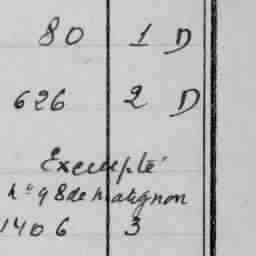 80 1 D
626 2 D
Exempté
n° 98 de Matignon
1406 3